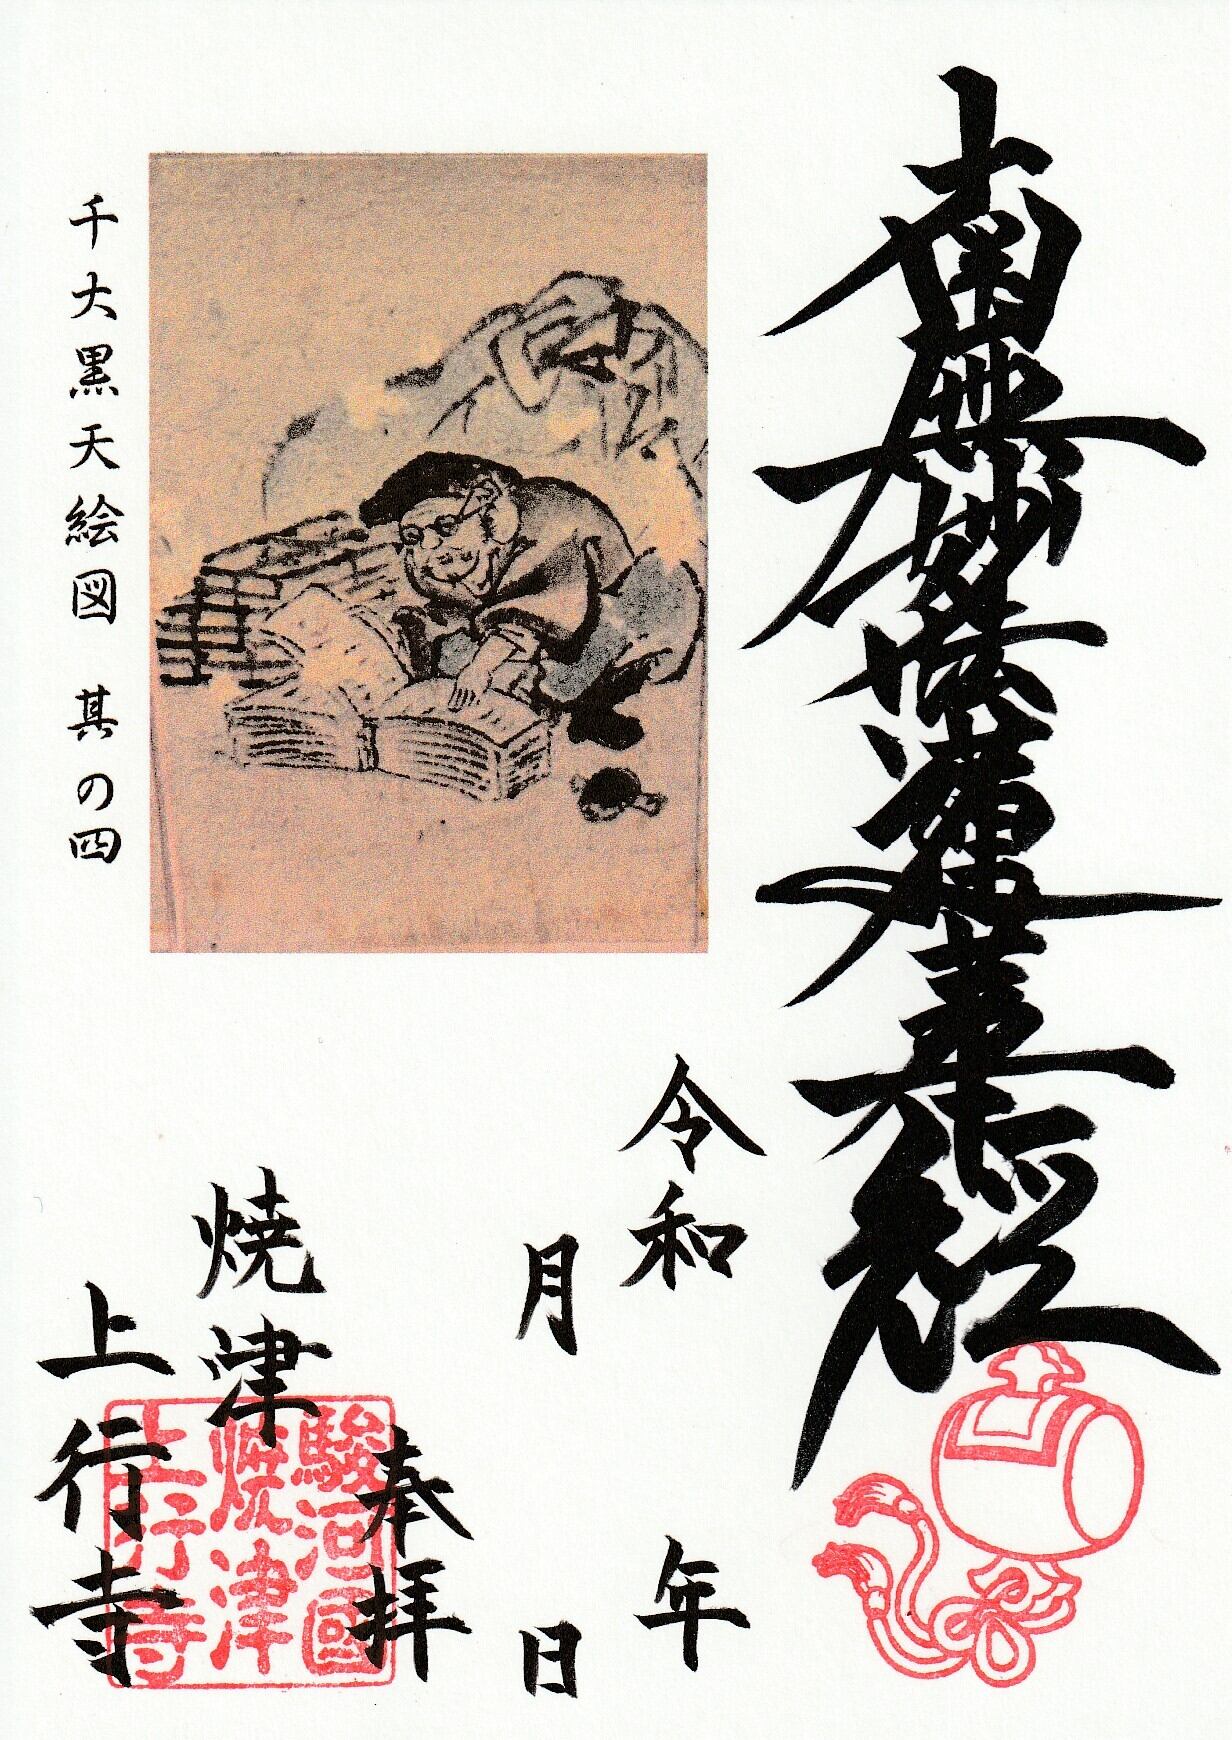 南無妙法蓮華経
令和 年
月 日
奉拝
焼津
上行寺
千大黒天絵図 其の四
駿河國
焼津
上行寺